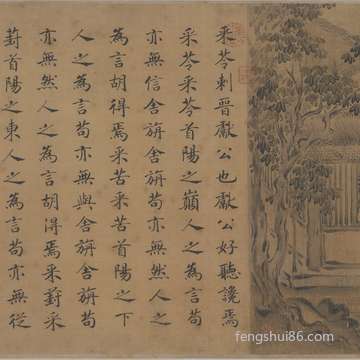 采苓刺晉獻公也獻公好聽讒焉
采苓采苓首陽之巔人之為言苟
亦無信舍旃舍旃苟亦無然人之
為言胡得焉采苦采苦首陽之下
人之為言苟亦無與舍旃舍旃苟
亦無然人之為言胡得焉采葑采
葑首陽之東人之為言苟亦無從
fengshui86.com